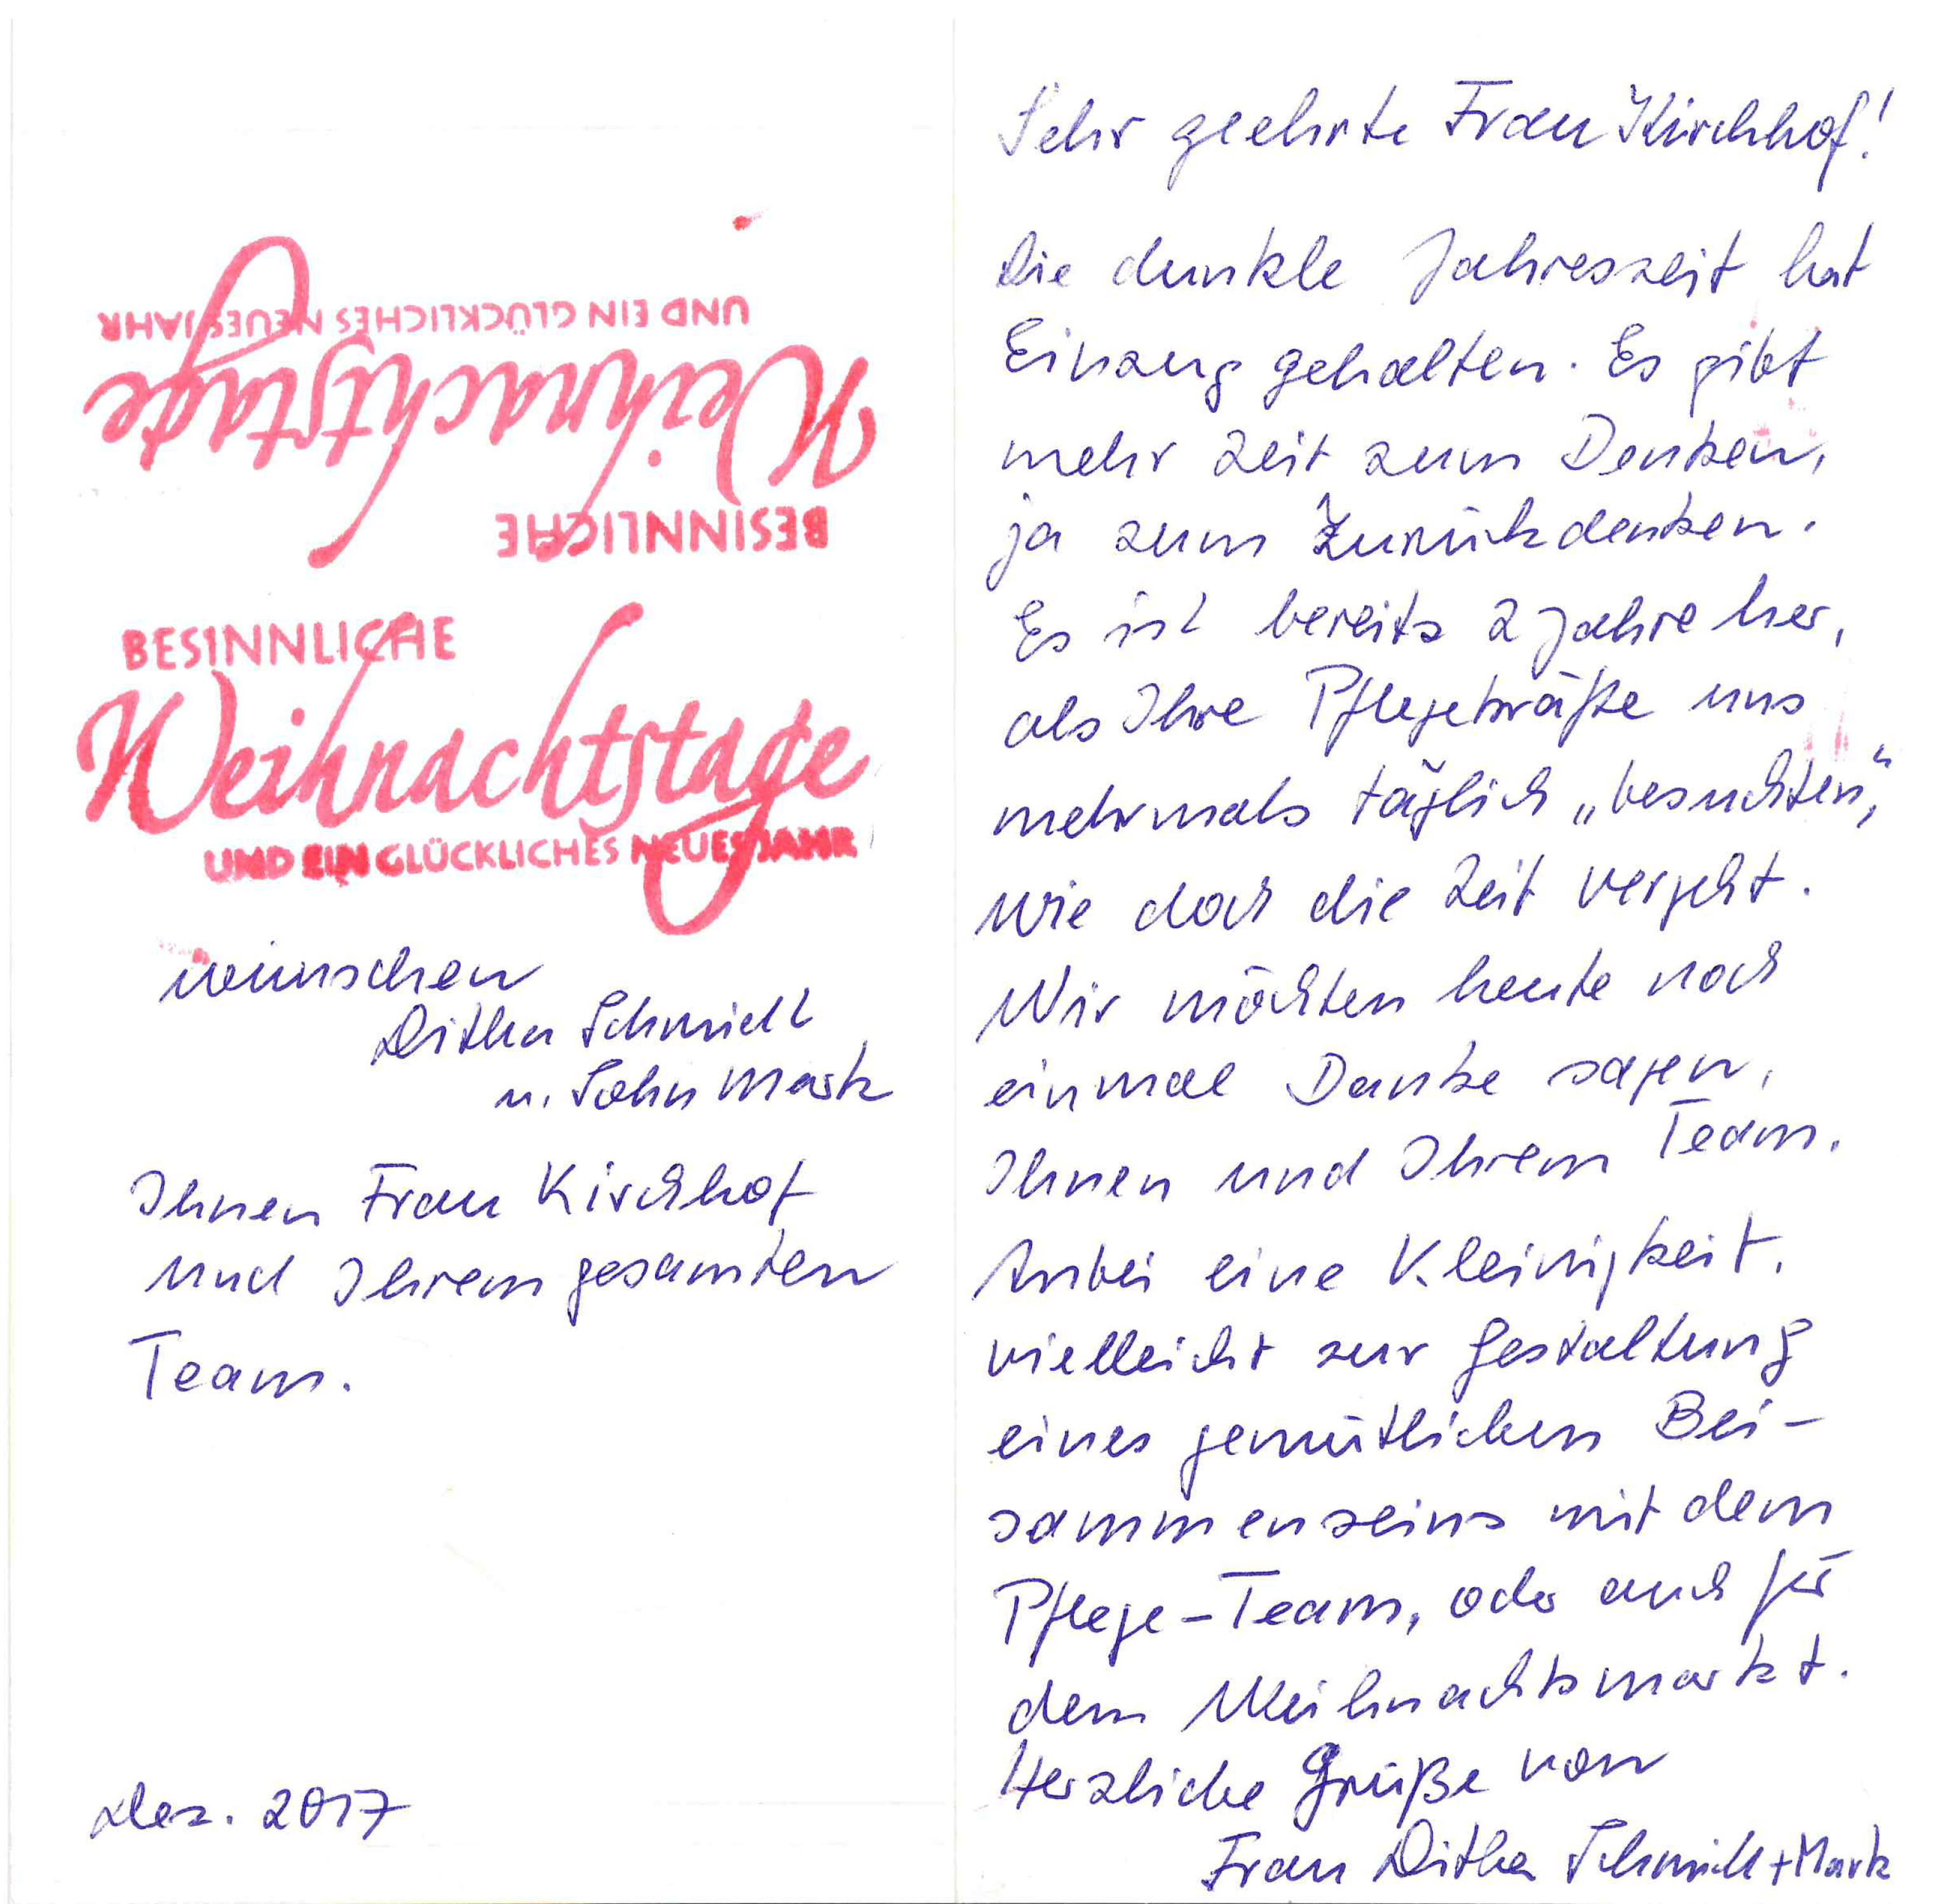 UND EIN GLÜCKLICHES NEUES JAHR
Weihnachtstage
BESINNLICHE
BESINNLICHE
Weihnachtstage
UND EIN GLÜCKLICHES NEUES JAHR
wünschen
Ditha Schmidt
u. Sohn Mark
Ihnen Frau Kirchhof
und Ihrem gesamten
Team.
Dez. 2017
Sehr geehrte Frau Kirchhof!
Die dunkle Jahreszeit hat
Einzug gehalten. Es gibt
mehr Zeit zum Denken,
ja zum Zurückdenken.
Es ist bereits 2 Jahre her,
als Ihre Pflegekräfte uns
mehrmals täglich „besuchten“,
wie doch die Zeit vergeht.
Wir möchten heute noch
einmal Danke sagen,
Ihnen und Ihrem Team.
Anbei eine Kleinigkeit,
vielleicht zur Gestaltung
eines gemütlichen Bei-
sammenseins mit dem
Pflege-Team, oder auch für
dem Weihnachtsmarkt.
Herzliche Grüße von
Frau Ditha Schmidt + Mark